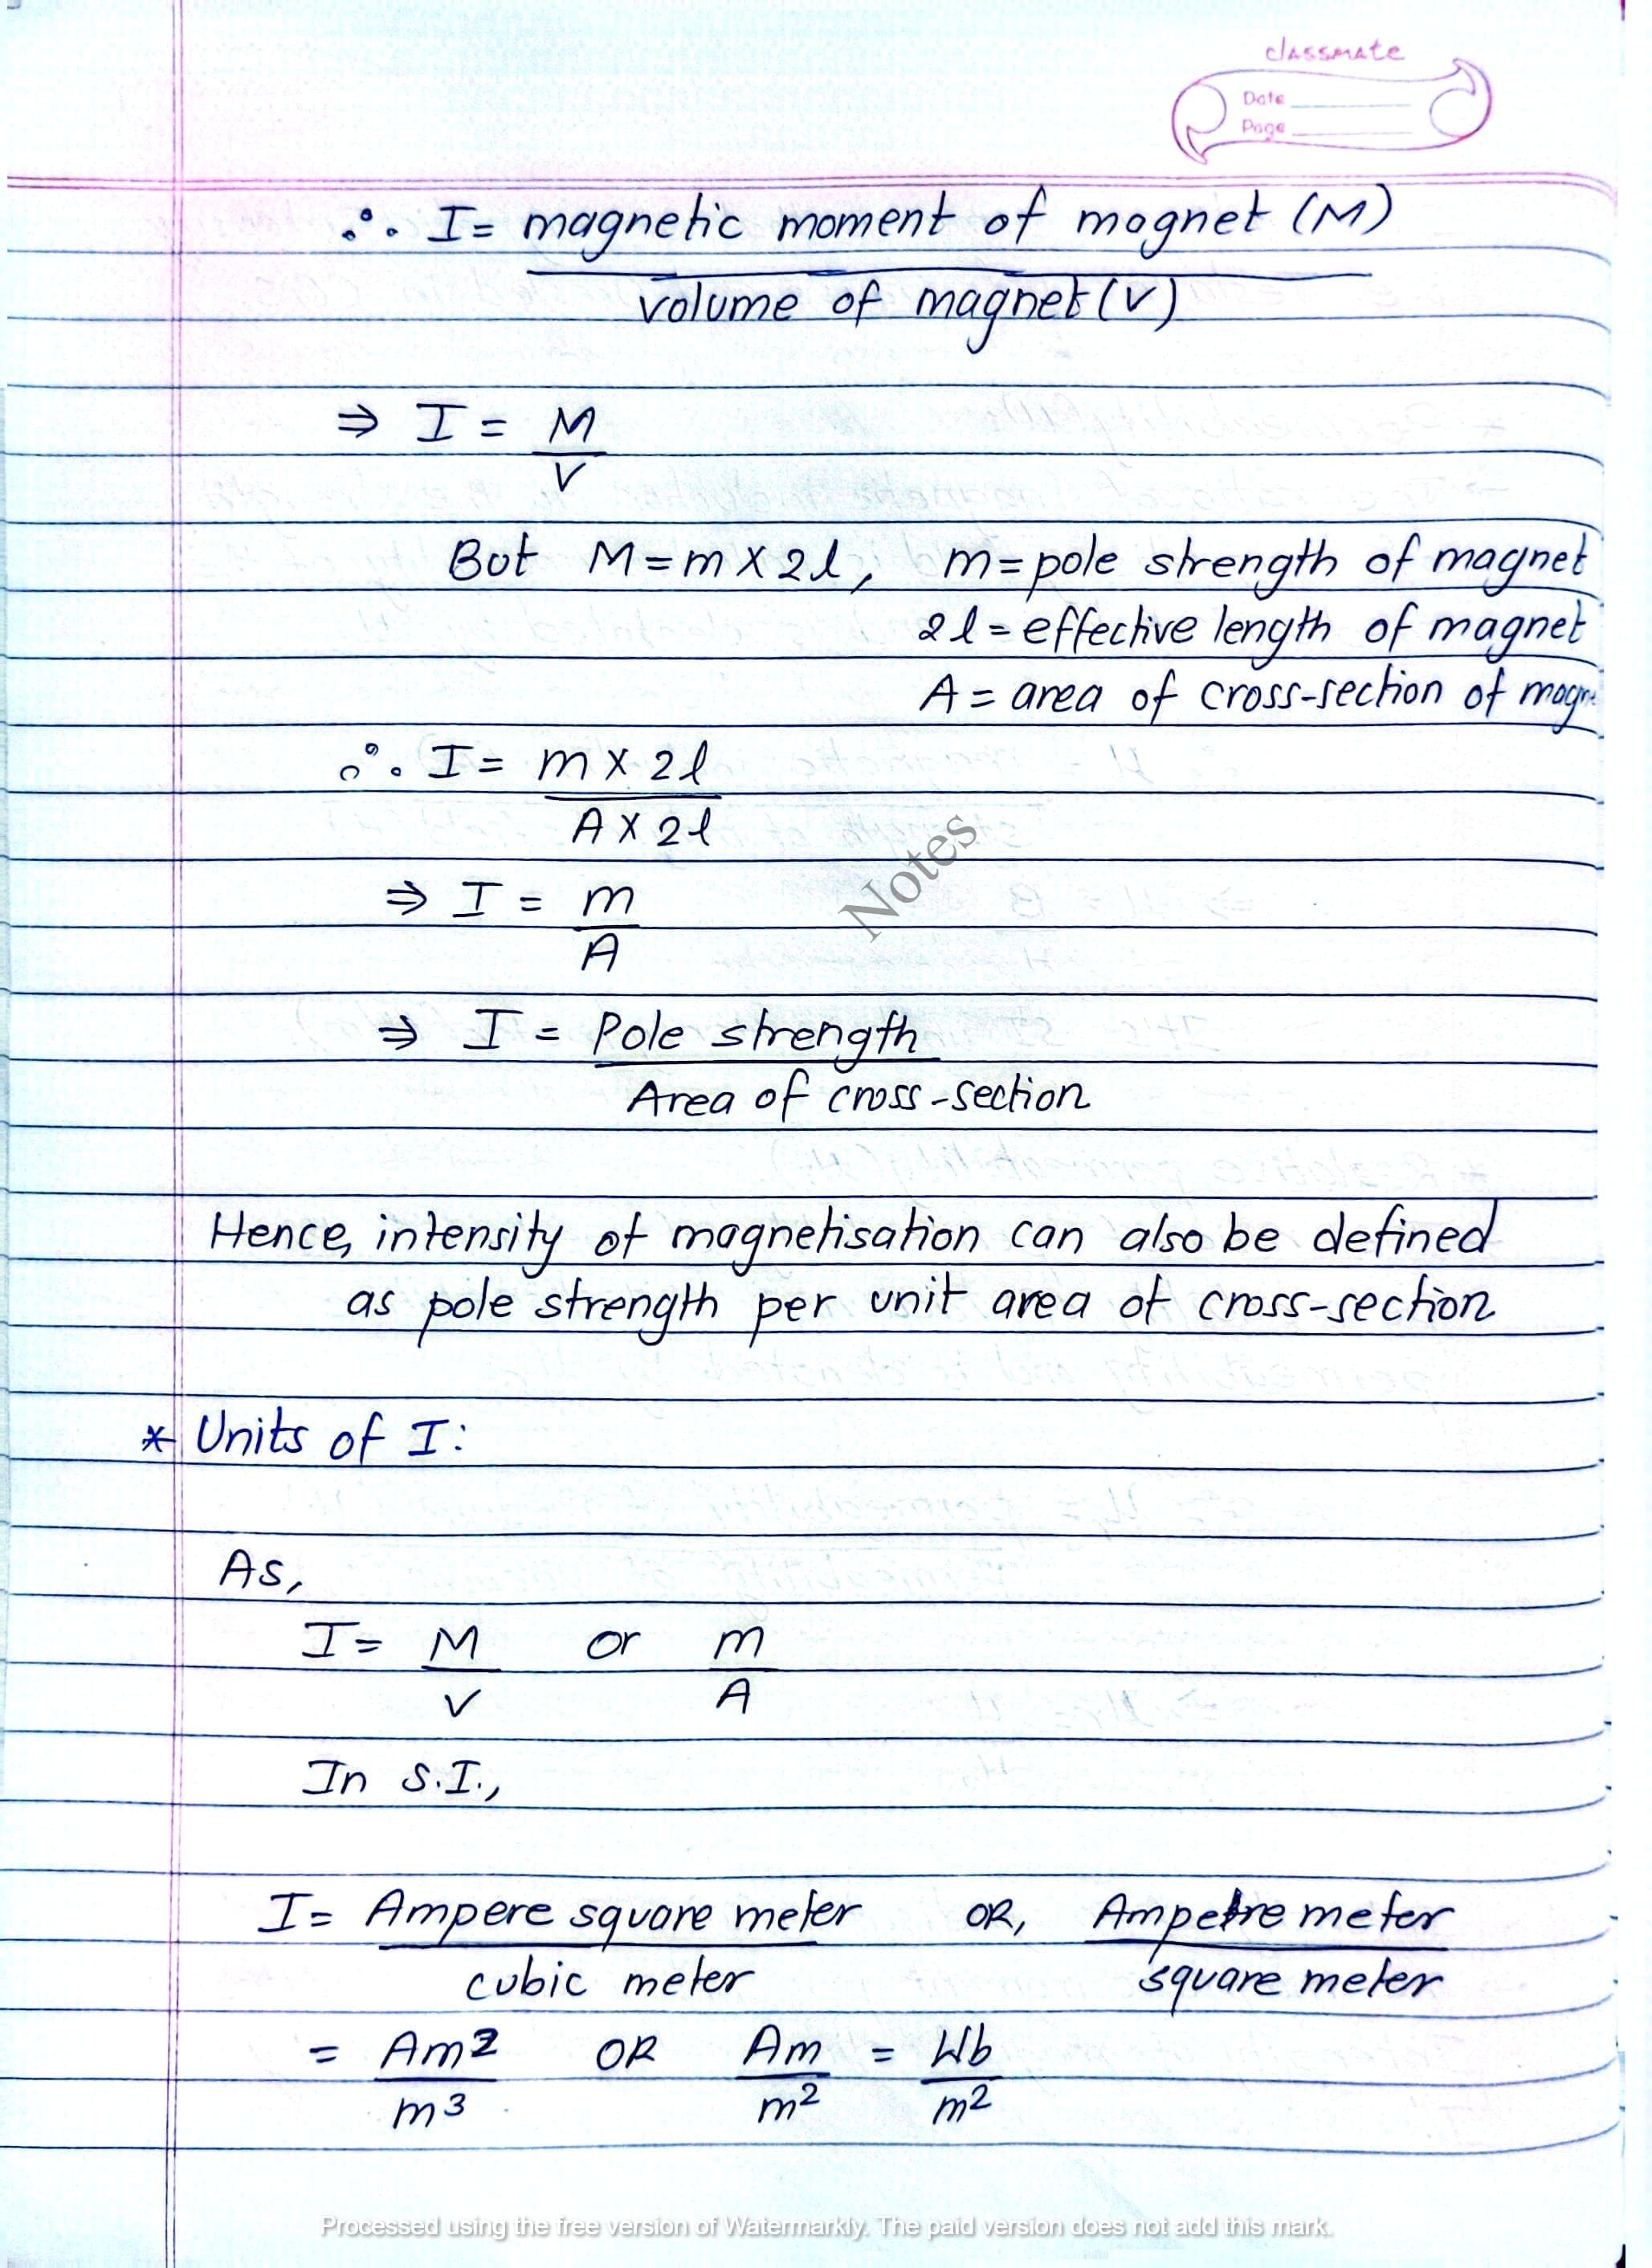 classmate
Date
Page
∴ I = magnetic moment of magnet (M)
volume of magnet (V)
⇒ I = M
V
But M = m × 2l, m = pole strength of magnet
2l = effective length of magnet
A = area of cross-section of magn
∴ I = m × 2l
A × 2l
⇒ I = m
A
Notes
⇒ I = Pole strength
Area of cross-section
Hence, intensity of magnetisation can also be defined
as pole strength per unit area of cross-section
* Units of I:
As,
I = M or m
V A
In S.I.,
I = Ampere square meter OR, Ampere meter
cubic meter square meter
= Am² OR Am = Wb
m³ m² m²
Processed using the free version of Watermarkly. The paid version does not add this mark.